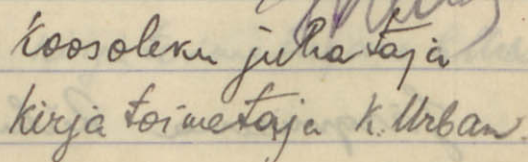 Koosoleku juhataja
Kirjatoimetaja K. Urban